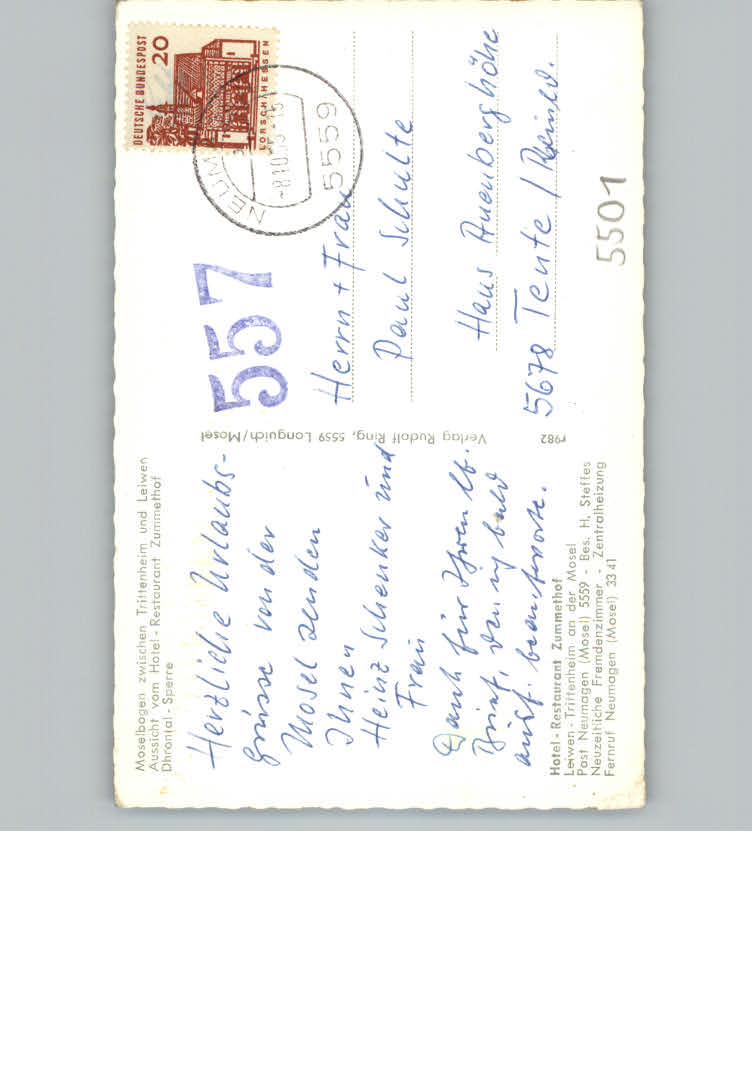 Moselbogen zwischen Trittenheim und Leiwen
Aussicht vom Hotel - Restaurant Zummethof
Dhrontal - Sperre
Herzliche Urlaubs-
grüsse von der
Mosel senden
Ihnen
Heinz Schenker und
Frau
Dank für Ihren lb.
Brief, den ich bald
ausf. beantworte.
Hotel - Restaurant Zummethof
Leiwen - Trittenheim an der Mosel
Post Neumagen (Mosel) 5559 - Bes. H. Steffes
Neuzeitliche Fremdenzimmer - Zentralheizung
Fernruf Neumagen (Mosel) 33 41
Verlag Rudolf Ring, 5559 Longuich/Mosel
r982
DEUTSCHE BUNDESPOST
20
LORSCH/HESSEN
NEUM
-8.10.
5559
557
Herrn + Frau
Paul Schulte
Haus Auenberghöhe
5678 Tente / Rheinld.
5501